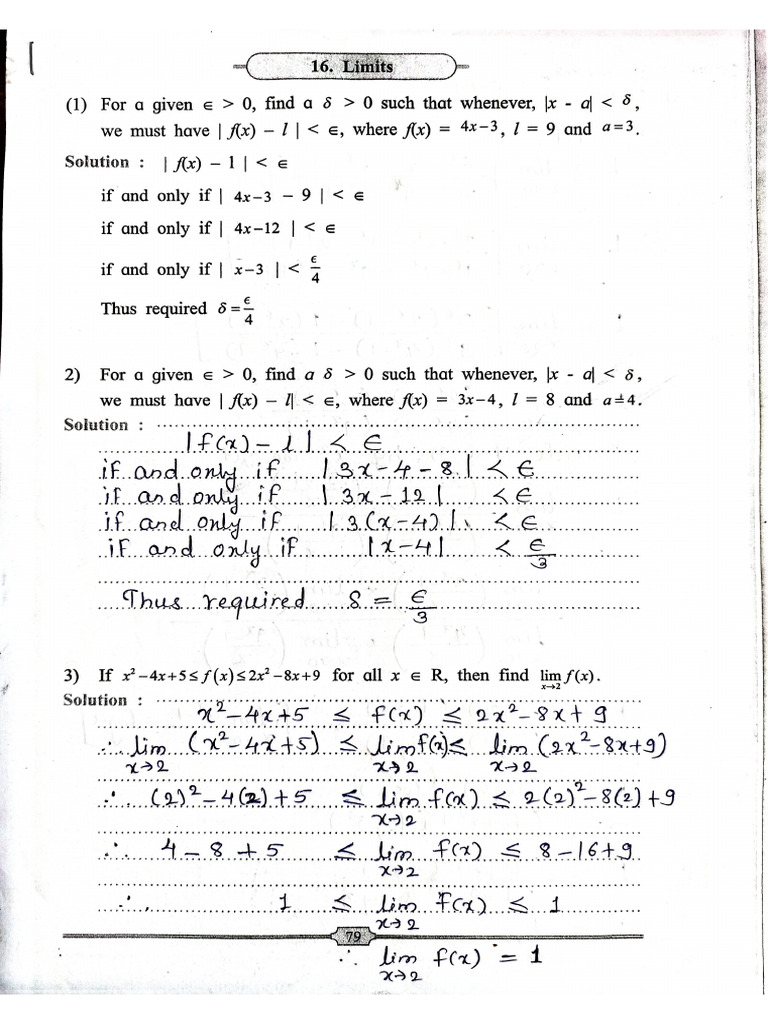 16. Limits
(1) For a given ∈ > 0, find a δ > 0 such that whenever, |x - a| < δ,
we must have | f(x) – l | < ∈, where f(x) = 4x–3, l = 9 and a=3.
Solution : | f(x) – 1 | < ∈
if and only if | 4x–3 – 9 | < ∈
if and only if | 4x–12 | < ∈
if and only if | x–3 | < ϵ/4
Thus required δ = ϵ/4
2) For a given ∈ > 0, find a δ > 0 such that whenever, |x - a| < δ,
we must have | f(x) – l| < ∈, where f(x) = 3x–4, l = 8 and a=4.
Solution :
|f(x) – l| < ∈
if and only if |3x – 4 – 8| < ∈
if and only if |3x – 12| < ∈
if and only if |3(x – 4)| < ∈
if and only if |x – 4| < ∈/3
Thus required δ = ∈/3
3) If x²–4x+5 ≤ f(x) ≤ 2x²–8x+9 for all x ∈ R, then find lim x→2 f(x).
Solution :
x² – 4x + 5 ≤ f(x) ≤ 2x² – 8x + 9
∴ lim x→2 (x² – 4x + 5) ≤ lim x→2 f(x) ≤ lim x→2 (2x² – 8x + 9)
∴ (2)² – 4(2) + 5 ≤ lim x→2 f(x) ≤ 2(2)² – 8(2) + 9
∴ 4 – 8 + 5 ≤ lim x→2 f(x) ≤ 8 – 16 + 9
∴ 1 ≤ lim x→2 f(x) ≤ 1
79
∴ lim x→2 f(x) = 1